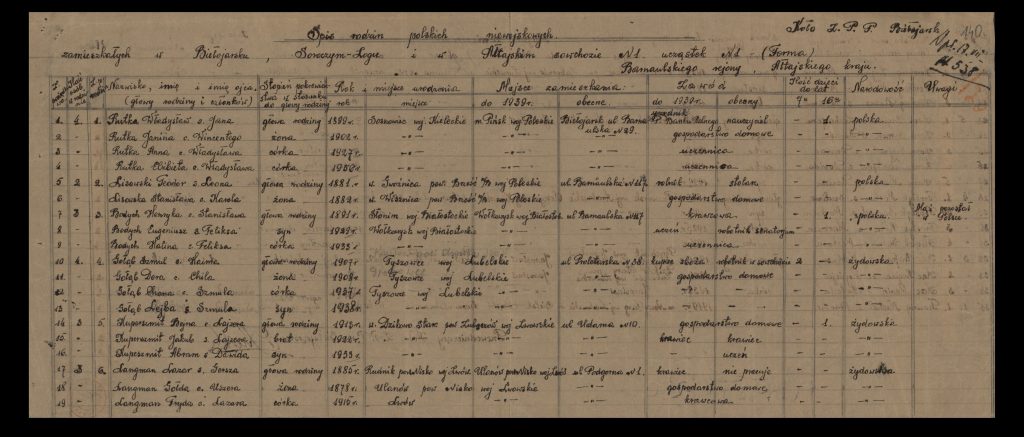 Spis rodzin polskich niewojskowych
Koło Z.P.P. Białojarsk
140
zamieszkałych w Białojarsku, Borczym-Logu i w Ałtajskim sowchozie N1 uczastok N1 (Ferma)
№ 538
Barnaulskiego rejony, Ałtajskiego kraju.
Nazwisko, imię i imię ojca. (głowy rodziny i członków) Stopień pokrewieństwa w stosunku do głowy rodziny Rok i miejsce urodzenia Miejsce zamieszkania Zawód Ilość dzieci do lat Narodowość Uwagi
rok miejsce do 1939r. obecne. do 1939r. obecny 7 16
1. 4. 1. Rutka Władysław s. Jana głowa rodziny 1899r. Sosnowiec woj. Kieleckie m. Pińsk woj. Poleskie Białojarsk ul. Barnaulska N29. urzędnik P. Banku Rolnego nauczyciel - 1. polska
2. - - Rutka Janina c. Wincentego żona 1902r. -"- -"- gospodarstwo domowe
3. - - Rutka Anna c. Władysława córka 1927r. -"- -"- uczennica
4. - - Rutka Elżbieta c. Władysława córka 1932r. -"- -"- uczennica
5 2 2. Lisowski Teodor s. Leona głowa rodziny 1881r. pow. Brześć n/B woj. Poleskie ul. Barnaulska robotn. stolarz - - polska
6 - - Lisowska Stanisława c. Karola żona 1882r. pow. Brześć n/B woj. Poleskie -"- gospodarstwo domowe
7 3 3. Bodych Henryka c. Stanisława głowa rodziny 1891r. Słonim woj. Białostockie Wołkowysk woj. Białostock. ul. Barnaulska krawcowa - 1. polska Mąż pozostał w Polsce
8 - - Bodych Eugeniusz s. Feliksa syn Wołkowysk woj. Białostockie -"- uczeń robotnik
9 - - Bodych Halina c. Feliksa córka 1933r. -"- -"- uczennica
10 4. 4. Gołąb Szmul s. Chaima głowa rodziny 1907r. Tyszowce woj. Lubelskie ul. Proletarska N38. kupiec zboża robotnik w sowchozie 2 - żydowska
11 - - Gołąb Dora c. Chila żona 1908r. Tyszowce woj. Lubelskie -"- gospodarstwo domowe
12 - - Gołąb c. Szmula córka 1937r. Tyszowce woj. Lubelskie -"-
13 - - Gołąb Lejba s. Szmula syn 1938r. -"- -"-
14 3 5. Kuperszmit c. Lejzora głowa rodziny 1913r. Dzików Stary pow. Lubaczów woj. Lwowskie ul. Udarna N10. gospodarstwo domowe - 1. żydowska
15. - - Kuperszmit Jakub s. Lejzora brat 1922r. -"- -"- krawiec krawiec
16. - - Kuperszmit Abram s. Dawida syn 1933r. -"- -"- uczeń
17 3 6. Langman Lazar s. Gersza głowa rodziny 1885r. Rudnik pow. Nisko woj. Lwów. Ulanów pow. Nisko woj. Lwów ul. Podgorna N1. krawiec nie pracuje - - żydowska
18 - - Langman Golda c. Uszera żona 1878r. Ulanów pow. Nisko woj. Lwowskie -"- gospodarstwo domowe
19 - - Langman Fryda c. Lazara córka 1915r. Lwów -"- krawcowa